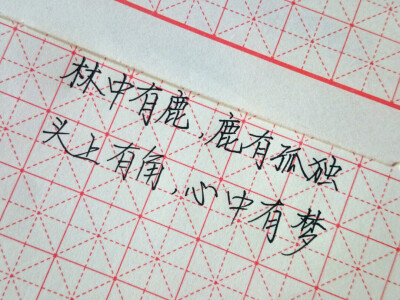 林中有鹿，鹿有孤独
头上有角，心中有梦